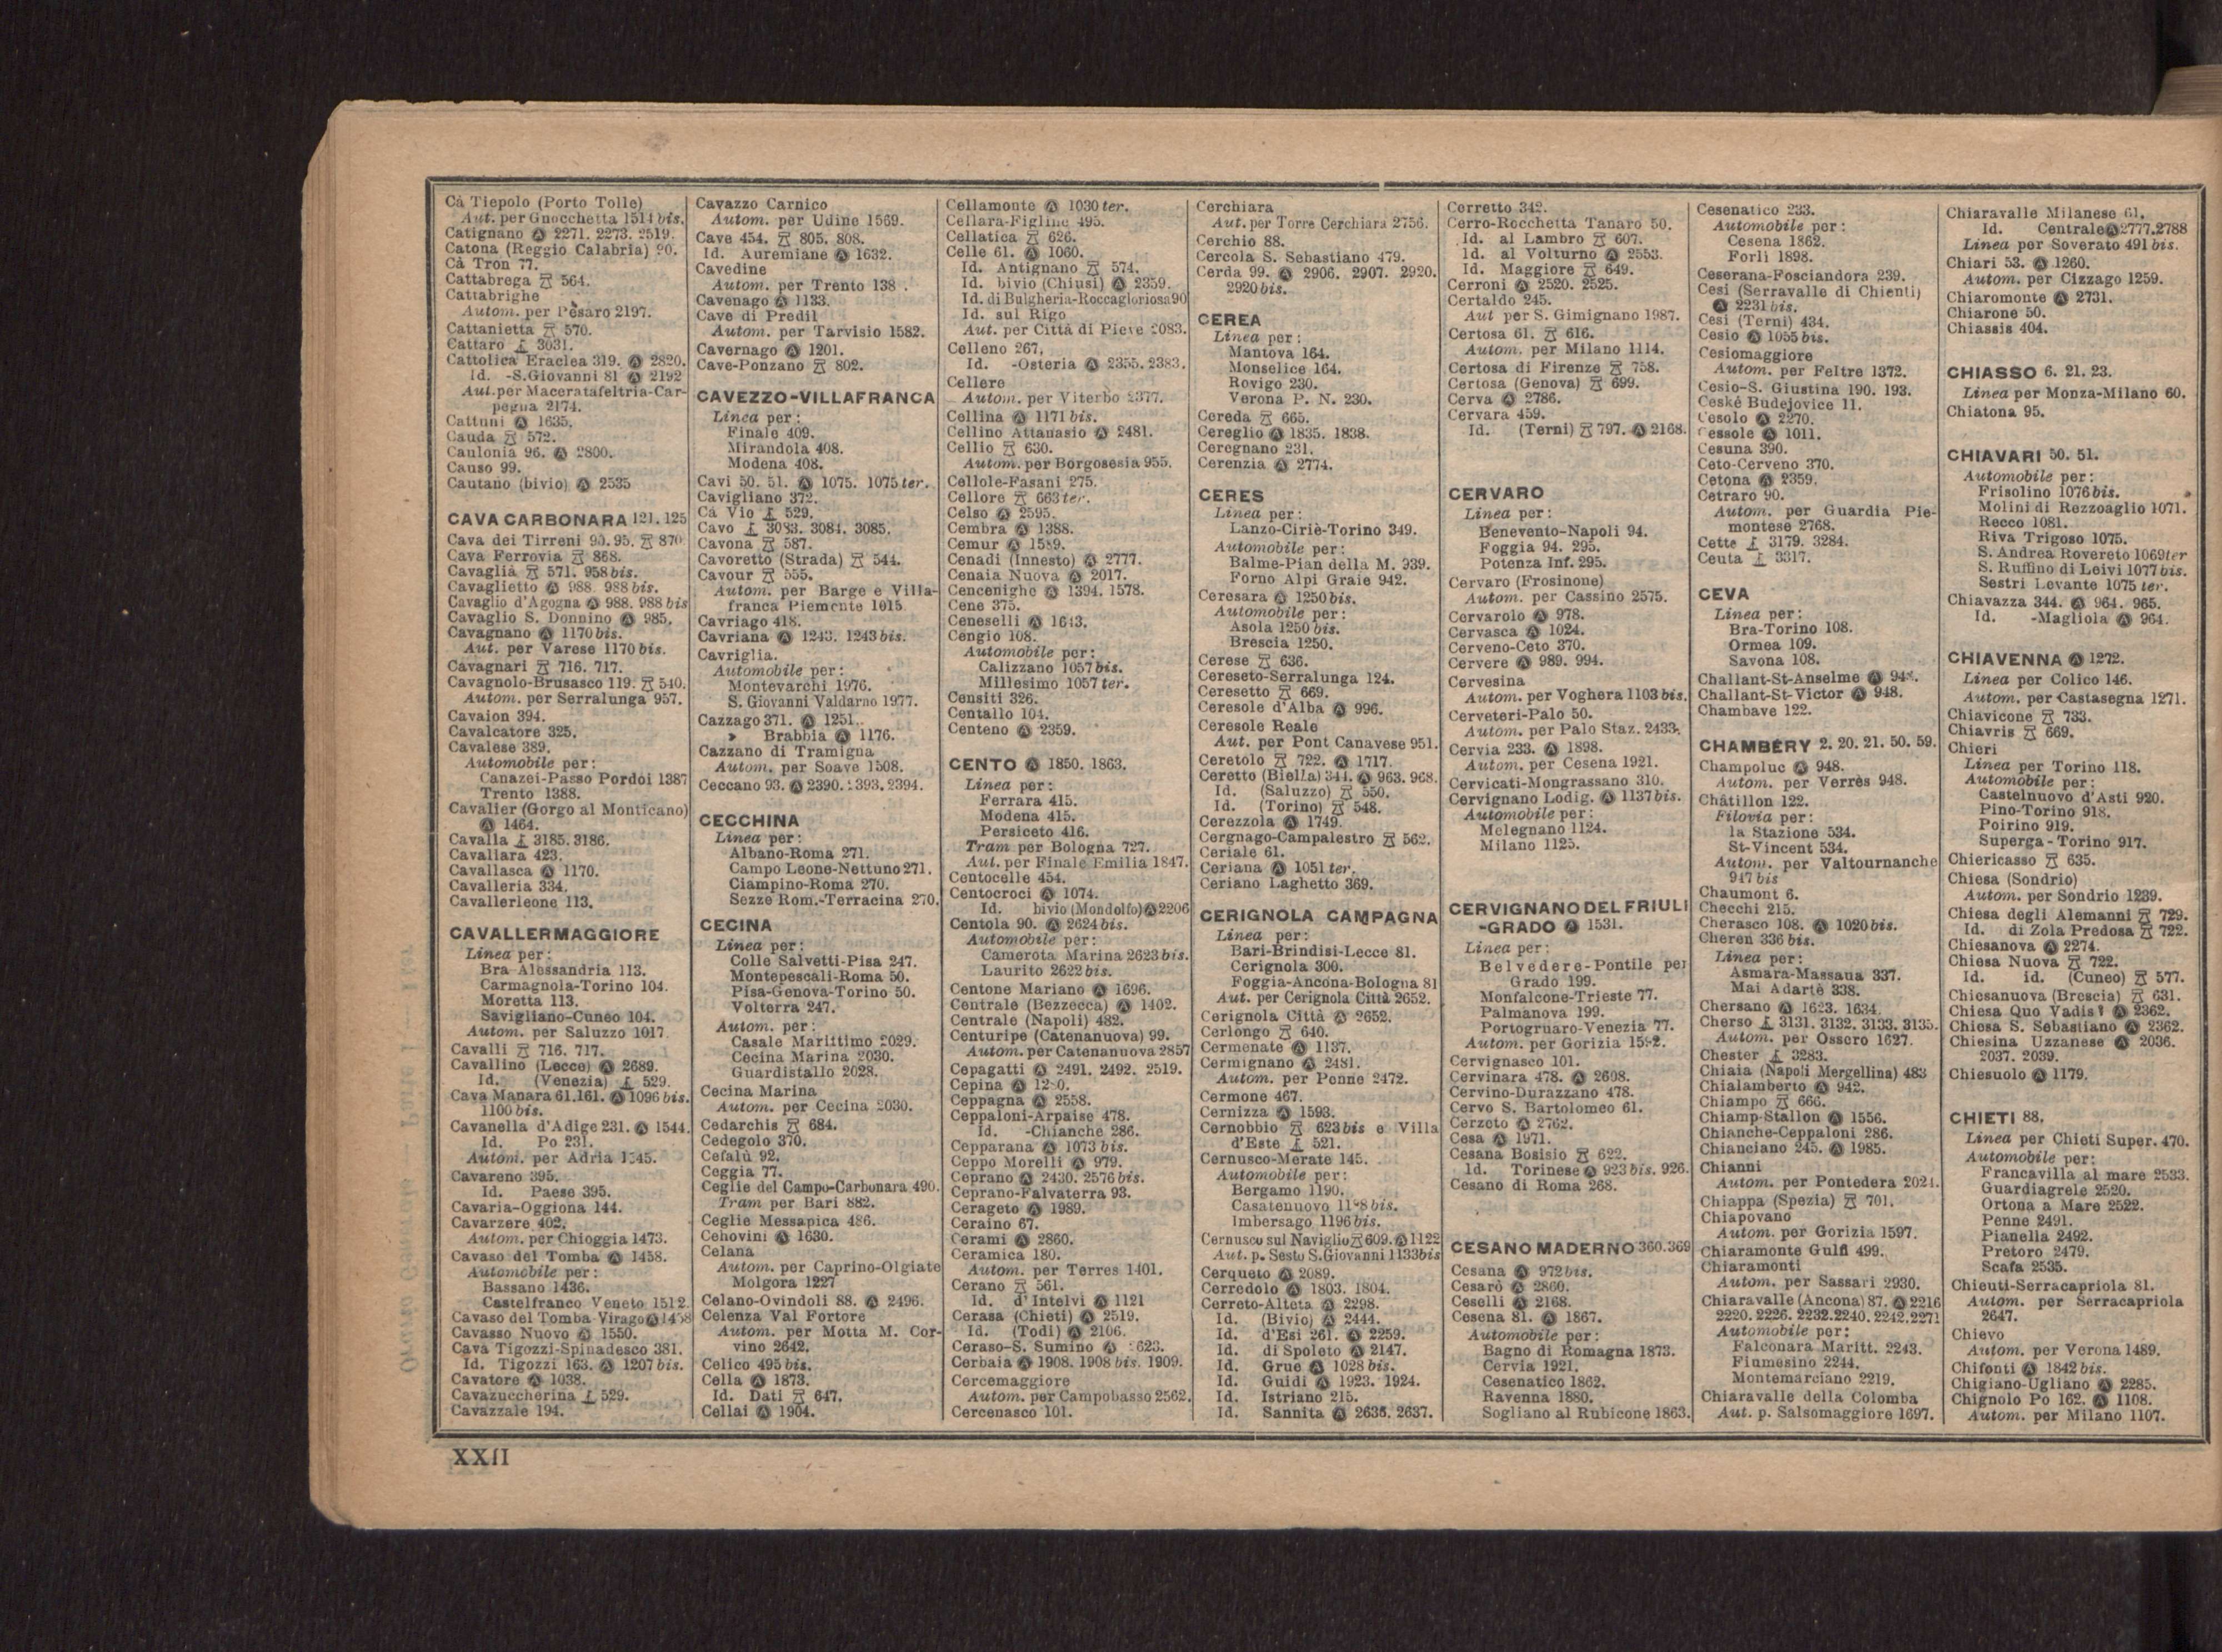 Cà Tiepolo (Porto Tolle)
Aut. per Gnocchetta 1514 bis.
Catignano Ⓐ 2271. 2273. 2519.
Catona (Reggio Calabria) 90.
Cà Tron 77.
Cattabrega 564.
Cattabrighe
Autom. per Pesaro 2197.
Cattanietta 570.
Cattaro 3031.
Cattolica Eraclea 319. Ⓐ 2820.
Id. -S.Giovanni 81 Ⓐ 2192
Aut.per Maceratafeltria-Car-
pegna 2174.
Cattuni Ⓐ 1635.
Cauda 572.
Caulonia 96. Ⓐ 2800.
Causo 99.
Cautano (bivio) Ⓐ 2535
CAVA CARBONARA 121. 125
Cava dei Tirreni 90. 95. 870
Cava Ferrovia 868.
Cavaglià 571. 958 bis.
Cavaglietto Ⓐ 988. 988 bis.
Cavaglio d'Agogna Ⓐ 988. 988 bis
Cavaglio S. Donnino Ⓐ 985.
Cavagnano Ⓐ 1170 bis.
Aut. per Varese 1170 bis.
Cavagnari 716. 717.
Cavagnolo-Brusasco 119. 540.
Autom. per Serralunga 957.
Cavaion 394.
Cavalcatore 325.
Cavalese 389.
Automobile per:
Canazei-Passo Pordoi 1387
Trento 1388.
Cavalier (Gorgo al Monticano)
Ⓐ 1464.
Cavalla 3185. 3186.
Cavallara 423.
Cavallasca Ⓐ 1170.
Cavalleria 334.
Cavallerleone 113.
CAVALLERMAGGIORE
Linea per:
Bra Alessandria 113.
Carmagnola-Torino 104.
Moretta 113.
Savigliano-Cuneo 104.
Autom. per Saluzzo 1017.
Cavalli 716. 717.
Cavallino (Lecce) Ⓐ 2689.
Id. (Venezia) 529.
Cava Manara 61.161. Ⓐ 1096 bis.
1100 bis.
Cavanella d'Adige 231. Ⓐ 1544.
Id. Po 231.
Autom. per Adria 1545.
Cavareno 395.
Id. Paese 395.
Cavaria-Oggiona 144.
Cavarzere 402.
Autom. per Chioggia 1473.
Cavaso del Tomba Ⓐ 1458.
Automobile per:
Bassano 1436.
Castelfranco Veneto 1512.
Cavaso del Tomba-Virago Ⓐ 1458
Cavasso Nuovo Ⓐ 1550.
Cava Tigozzi-Spinadesco 381.
Id. Tigozzi 163. Ⓐ 1207 bis.
Cavatore Ⓐ 1038.
Cavazuccherina 529.
Cavazzale 194.
Cavazzo Carnico
Autom. per Udine 1569.
Cave 454. 805. 808.
Id. Auremiane Ⓐ 1632.
Cavedine
Autom. per Trento 138
Cavenago Ⓐ 1133.
Cave di Predil
Autom. per Tarvisio 1582.
Cavernago Ⓐ 1201.
Cave-Ponzano 802.
CAVEZZO-VILLAFRANCA
Linea per:
Finale 409.
Mirandola 408.
Modena 408.
Cavi 50. 51. Ⓐ 1075. 1075 ter.
Cavigliano 372.
Cà Vio 529.
Cavo 3083. 3084. 3085.
Cavona 587.
Cavoretto (Strada) 544.
Cavour 555.
Autom. per Barge e Villa-
franca Piemonte 1015
Cavriago 418.
Cavriana Ⓐ 1243. 1243 bis.
Cavriglia.
Automobile per:
Montevarchi 1976.
S. Giovanni Valdarno 1977.
Cazzago 371. Ⓐ 1251.
» Brabbia Ⓐ 1176.
Cazzano di Tramigna
Autom. per Soave 1508.
Ceccano 93. Ⓐ 2390. 2393. 2394.
CECCHINA
Linea per:
Albano-Roma 271.
Campo Leone-Nettuno 271.
Ciampino-Roma 270.
Sezze Rom.-Terracina 270.
CECINA
Linea per:
Colle Salvetti-Pisa 247.
Montepescali-Roma 50.
Pisa-Genova-Torino 50.
Volterra 247.
Autom. per:
Casale Marittimo 2029.
Cecina Marina 2030.
Guardistallo 2028.
Cecina Marina
Autom. per Cecina 2030.
Cedarchis 684.
Cedegolo 370.
Cefalù 92.
Ceggia 77.
Ceglie del Campo-Carbonara 490.
Tram per Bari 882.
Ceglie Messapica 486.
Cehovini Ⓐ 1630.
Celana
Autom. per Caprino-Olgiate
Molgora 1227
Celano-Ovindoli 88. Ⓐ 2496.
Celenza Val Fortore
Autom. per Motta M. Cor-
vino 2642.
Celico 495 bis.
Cella Ⓐ 1873.
Id. Dati 647.
Cellai Ⓐ 1904.
Cellamonte Ⓐ 1030 ter.
Cellara-Figline 495.
Cellatica 626.
Celle 61. Ⓐ 1060.
Id. Antignano 574.
Id. bivio (Chiusi) Ⓐ 2359.
Id. di Bulgheria-Roccagloriosa 90
Id. sul Rigo
Aut. per Città di Pieve 2083.
Celleno 267.
Id. -Osteria Ⓐ 2355. 2383.
Cellere
Autom. per Viterbo 2377.
Cellina Ⓐ 1171 bis.
Cellino Attanasio Ⓐ 2481.
Cellio 630.
Autom. per Borgosesia 955.
Cellole-Fasani 275.
Cellore 663 ter.
Celso Ⓐ 2595.
Cembra Ⓐ 1388.
Cemur Ⓐ 1589.
Cenadi (Innesto) Ⓐ 2777.
Cenaia Nuova Ⓐ 2017.
Cencenighe Ⓐ 1394. 1578.
Cene 375.
Ceneselli Ⓐ 1643.
Cengio 108.
Automobile per:
Calizzano 1057 bis.
Millesimo 1057 ter.
Censiti 326.
Centallo 104.
Centeno Ⓐ 2359.
CENTO Ⓐ 1850. 1863.
Linea per:
Ferrara 415.
Modena 415.
Persiceto 416.
Tram per Bologna 727.
Aut. per Finale Emilia 1847.
Centocelle 454.
Centocroci Ⓐ 1074.
Id. bivio (Mondolfo) Ⓐ 2206
Centola 90. Ⓐ 2624 bis.
Automobile per:
Camerota Marina 2623 bis.
Laurito 2622 bis.
Centone Mariano Ⓐ 1696.
Centrale (Bezzecca) Ⓐ 1402.
Centrale (Napoli) 482.
Centuripe (Catenanuova) 99.
Autom. per Catenanuova 2857
Cepagatti Ⓐ 2491. 2492. 2519.
Cepina Ⓐ
Ceppagna Ⓐ 2558.
Ceppaloni-Arpaise 478.
Id. -Chianche 286.
Cepparana Ⓐ 1073 bis.
Ceppo Morelli Ⓐ 979.
Ceprano Ⓐ 2430. 2576 bis.
Ceprano-Falvaterra 93.
Cerageto Ⓐ 1989.
Ceraino 67.
Cerami Ⓐ 2860.
Ceramica 180.
Autom. per Terres 1401.
Cerano 561.
Id. d'Intelvi Ⓐ 1121
Cerasa (Chieti) Ⓐ 2519.
Id. (Todi) Ⓐ 2106.
Ceraso-S. Sumino Ⓐ 2623.
Cerbaia Ⓐ 1908. 1908 bis. 1909.
Cercemaggiore
Autom. per Campobasso 2562.
Cercenasco 101.
Cerchiara
Aut. per Torre Cerchiara 2756.
Cerchio 88.
Cercola S. Sebastiano 479.
Cerda 99. Ⓐ 2906. 2907. 2920.
2920 bis.
CEREA
Linea per:
Mantova 164.
Monselice 164.
Rovigo 230.
Verona P. N. 230.
Cereda 665.
Cereglio Ⓐ 1835. 1838.
Ceregnano 231.
Cerenzia Ⓐ 2774.
CERES
Linea per:
Lanzo-Ciriè-Torino 349.
Automobile per:
Balme-Pian della M. 939.
Forno Alpi Graie 942.
Ceresara Ⓐ 1250 bis.
Automobile per:
Asola 1250 bis.
Brescia 1250.
Cerese 636.
Cereseto-Serralunga 124.
Ceresetto 669.
Ceresole d'Alba Ⓐ 996.
Ceresole Reale
Aut. per Pont Canavese 951.
Ceretolo 722. Ⓐ 1717.
Ceretto (Biella) 344. Ⓐ 963. 968.
Id. (Saluzzo) 550.
Id. (Torino) 548.
Cerezzola Ⓐ 1749.
Cergnago-Campalestro 562.
Ceriale 61.
Ceriana Ⓐ 1051 ter.
Ceriano Laghetto 369.
CERIGNOLA CAMPAGNA
Linea per:
Bari-Brindisi-Lecce 81.
Cerignola 300.
Foggia-Ancona-Bologna 81
Aut. per Cerignola Città 2652.
Cerignola Città Ⓐ 2652.
Cerlongo 640.
Cermenate Ⓐ 1137.
Cermignano Ⓐ 2481.
Autom. per Penne 2472.
Cermone 467.
Cernizza Ⓐ 1593.
Cernobbio 623 bis e Villa
d'Este 521.
Cernusco-Merate 145.
Automobile per:
Bergamo 1190.
Casatenuovo 1198 bis.
Imbersago 1196 bis.
Cernusco sul Naviglio 609. Ⓐ 1122
Aut. p. Sesto S.Giovanni 1133 bis
Cerqueto Ⓐ 2089.
Cerredolo Ⓐ 1803. 1804.
Cerreto-Alteta Ⓐ 2298.
Id. (Bivio) Ⓐ 2444.
Id. d'Esi 261. Ⓐ 2259.
Id. di Spoleto Ⓐ 2147.
Id. Grue Ⓐ 1028 bis.
Id. Guidi Ⓐ 1923. 1924.
Id. Istriano 215.
Id. Sannita Ⓐ 2636. 2637.
Cerretto 342.
Cerro-Rocchetta Tanaro 50.
Id. al Lambro 607.
Id. al Volturno Ⓐ 2553.
Id. Maggiore 649.
Cerroni Ⓐ 2520. 2525.
Certaldo 245.
Aut per S. Gimignano 1987.
Certosa 61. 616.
Autom. per Milano 1114.
Certosa di Firenze 758.
Certosa (Genova) 699.
Cerva Ⓐ 2786.
Cervara 459.
Id. (Terni) 797. Ⓐ 2168.
CERVARO
Linea per:
Benevento-Napoli 94.
Foggia 94. 295.
Potenza Inf. 295.
Cervaro (Frosinone)
Autom. per Cassino 2575.
Cervarolo Ⓐ 978.
Cervasca Ⓐ 1024.
Cerveno-Ceto 370.
Cervere Ⓐ 989. 994.
Cervesina
Autom. per Voghera 1103 bis.
Cerveteri-Palo 50.
Autom. per Palo Staz. 2433.
Cervia 233. Ⓐ 1898.
Autom. per Cesena 1921.
Cervicati-Mongrassano 310.
Cervignano Lodig. Ⓐ 1137 bis.
Automobile per:
Melegnano 1124.
Milano 1125.
CERVIGNANO DEL FRIULI
-GRADO Ⓐ 1531.
Linea per:
Belvedere-Pontile per
Grado 199.
Monfalcone-Trieste 77.
Palmanova 199.
Portogruaro-Venezia 77.
Autom. per Gorizia 1592.
Cervignasco 101.
Cervinara 478. Ⓐ 2608.
Cervino-Durazzano 478.
Cervo S. Bartolomeo 61.
Cerzeto Ⓐ 2762.
Cesa Ⓐ 1971.
Cesana Bosisio 622.
Id. Torinese Ⓐ 923 bis. 926.
Cesano di Roma 268.
CESANO MADERNO 360.369
Cesana Ⓐ 972 bis.
Cesarò Ⓐ 2860.
Ceselli Ⓐ 2168.
Cesena 81. Ⓐ 1867.
Automobile per:
Bagno di Romagna 1873.
Cervia 1921.
Cesenatico 1862.
Ravenna 1880.
Sogliano al Rubicone 1863.
Cesenatico 233.
Automobile per:
Cesena 1862.
Forlì 1898.
Ceserana-Fosciandora 239.
Cesi (Serravalle di Chienti)
Ⓐ 2231 bis.
Cesi (Terni) 434.
Cesio Ⓐ 1055 bis.
Cesiomaggiore
Autom. per Feltre 1372.
Cesio-S. Giustina 190. 193.
Ceskè Budejovice 11.
Cesolo Ⓐ 2270.
Cessole Ⓐ 1011.
Cesuna 390.
Ceto-Cerveno 370.
Cetona Ⓐ 2359.
Cetraro 90.
Autom. per Guardia Pie-
montese 2768.
Cette 3179. 3284.
Ceuta 3317.
CEVA
Linea per:
Bra-Torino 108.
Ormea 109.
Savona 108.
Challant-St-Anselme Ⓐ 948.
Challant-St-Victor Ⓐ 948.
Chambave 122.
CHAMBÉRY 2. 20. 21. 50. 59.
Champoluc Ⓐ 948.
Autom. per Verrès 948.
Châtillon 122.
Filovia per:
la Stazione 534.
St-Vincent 534.
Autom. per Valtournanche
947 bis
Chaumont 6.
Checchi 215.
Cherasco 108. Ⓐ 1020 bis.
Cheren 336 bis.
Linea per:
Asmara-Massaua 337.
Mai Adartè 338.
Chersano Ⓐ 1623. 1634.
Cherso 3131. 3132. 3133. 3135.
Autom. per Ossero 1627.
Chester 3283.
Chiaia (Napoli Mergellina) 483
Chialamberto Ⓐ 942.
Chiampo 666.
Chiamp-Stallon Ⓐ 1556.
Chianche-Ceppaloni 286.
Chianciano 245. Ⓐ 1985.
Chianni
Autom. per Pontedera 2021.
Chiappa (Spezia) 701.
Chiapovano
Autom. per Gorizia 1597.
Chiaramonte Gulfi 499.
Chiaramonti
Autom. per Sassari 2930.
Chiaravalle (Ancona) 87. Ⓐ 2216
2220. 2226. 2232.2240. 2242.2271
Automobile per:
Falconara Maritt. 2243.
Fiumesino 2244.
Montemarciano 2219.
Chiaravalle della Colomba
Aut. p. Salsomaggiore 1697.
Chiaravalle Milanese 61.
Id. Centrale Ⓐ 2777.2788
Linea per Soverato 491 bis.
Chiari 53. Ⓐ 1260.
Autom. per Cizzago 1259.
Chiaromonte Ⓐ 2731.
Chiarone 50.
Chiassis 404.
CHIASSO 6. 21. 23.
Linea per Monza-Milano 60.
Chiatona 95.
CHIAVARI 50. 51.
Automobile per:
Frisolino 1076 bis.
Molini di Rezzoaglio 1071.
Recco 1081.
Riva Trigoso 1075.
S. Andrea Rovereto 1069 ter
S. Ruffino di Leivi 1077 bis.
Sestri Levante 1075 ter.
Chiavazza 344. Ⓐ 964. 965.
Id. -Magliola Ⓐ 964.
CHIAVENNA Ⓐ 1272.
Linea per Colico 146.
Autom. per Castasegna 1271.
Chiavicone 733.
Chiavris 669.
Chieri
Linea per Torino 118.
Automobile per:
Castelnuovo d'Asti 920.
Pino-Torino 918.
Poirino 919.
Superga-Torino 917.
Chiericasso 635.
Chiesa (Sondrio)
Autom. per Sondrio 1239.
Chiesa degli Alemanni 729.
Id. di Zola Predosa 722.
Chiesanova Ⓐ 2274.
Chiesa Nuova 722.
Id. id. (Cuneo) 577.
Chiesanuova (Brescia) 631.
Chiesa Quo Vadis? Ⓐ 2362.
Chiesa S. Sebastiano Ⓐ 2362.
Chiesina Uzzanese Ⓐ 2036.
2037. 2039.
Chiesuolo Ⓐ 1179.
CHIETI 88.
Linea per Chieti Super. 470.
Automobile per:
Francavilla al mare 2533.
Guardiagrele 2520.
Ortona a Mare 2522.
Penne 2491.
Pianella 2492.
Pretoro 2479.
Scafa 2535.
Chieuti-Serracapriola 81.
Autom. per Serracapriola
2647.
Chievo
Autom. per Verona 1489.
Chifonti Ⓐ 1842 bis.
Chigiano-Ugliano Ⓐ 2285.
Chignolo Po 162. Ⓐ 1108.
Autom. per Milano 1107.
XXII